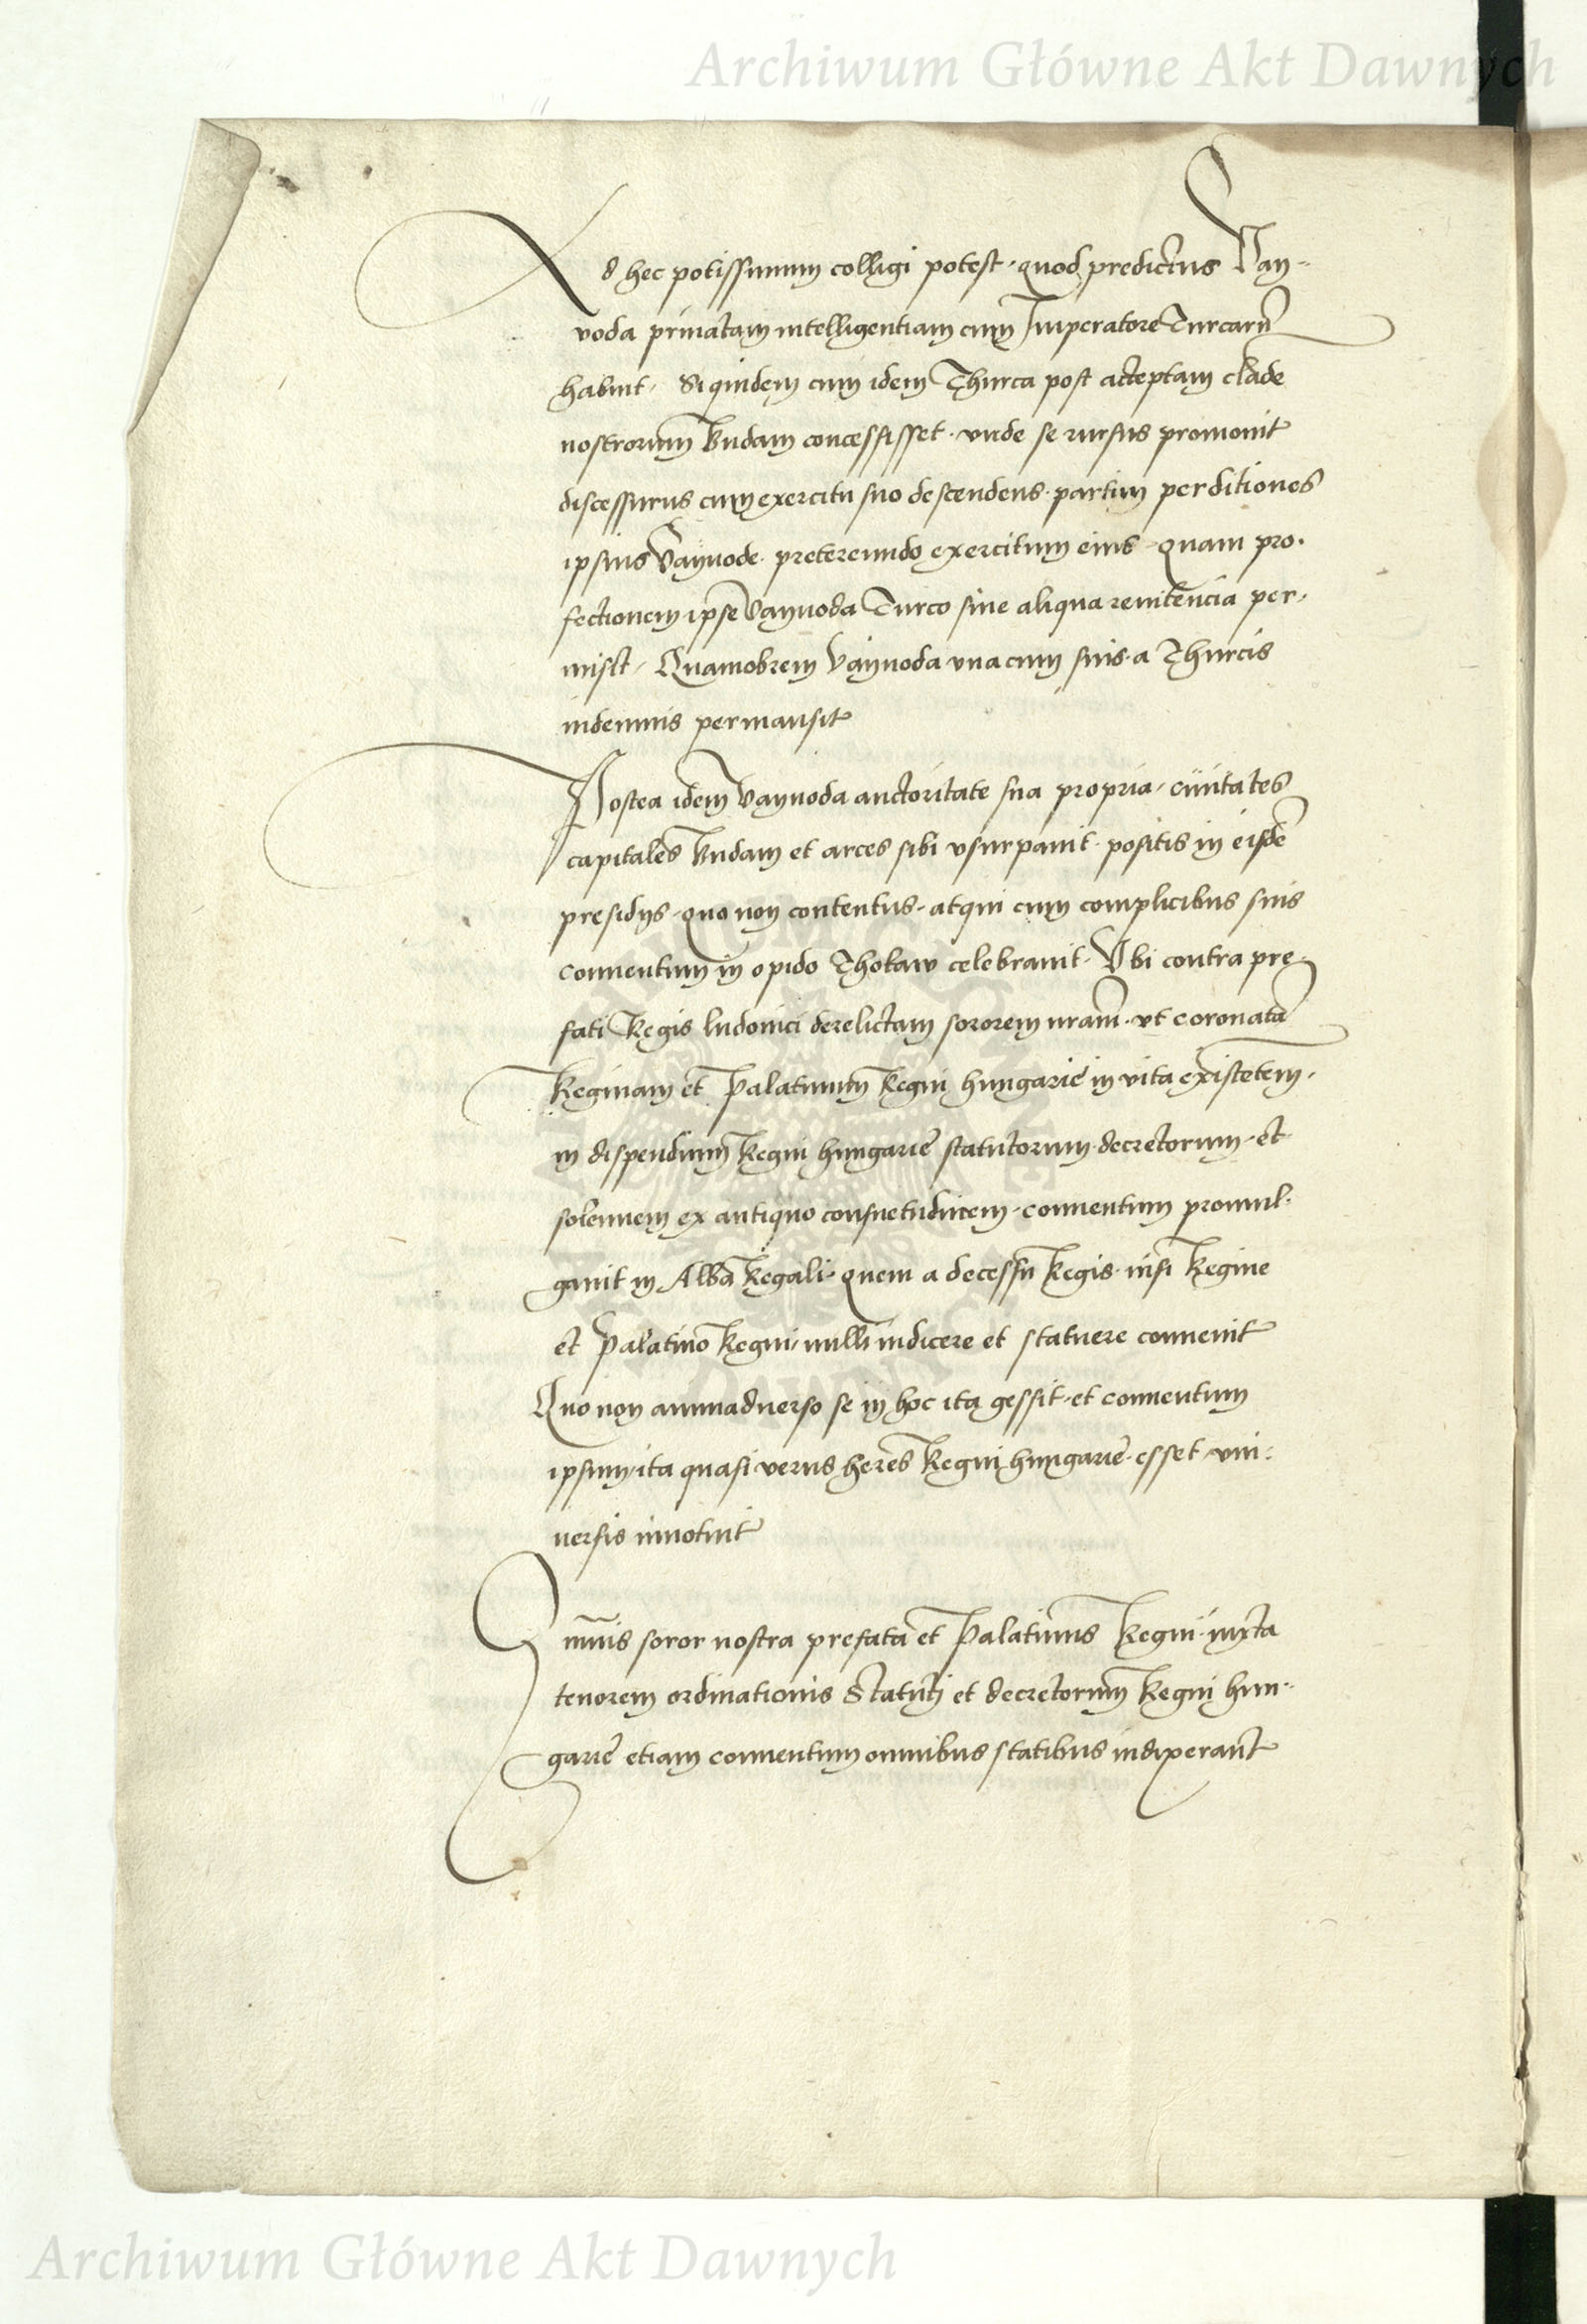 Archiwum Główne Akt Dawnych
Ad hec potissimum colligi potest, quod predictus Vay-
voda priuatam intelligentiam cum Imperatore Turcarū
habuit, Siquidem cum idem Thurca post acceptam clade
nostrorum Budam concessisset, vnde se rursus promouit
discessurus cum exercitu suo descendens, partim per ditiones
ipsius Vayuode, pretereundo exercitum eius, quam pro-
fectionem ipse Vayuoda Turco sine aliqua renitencia per-
misit, Quamobrem Vayuoda vna cum suis a Thurcis
indemnis permansit
Postea idem Vayuoda auctoritate sua propria, ciuitates
capitales Budam et arces sibi vsurpauit, positis in eisdē
presidys, quo non contentus, atqui cum complicibus suis
conuentum in opido Thokaw celebrauit, Vbi contra pre-
fati Regis Ludouici derelictam sororem nram, vt coronatā
Reginam et Palatinum Regni Hungarie in vita existētem,
in dispendium Regni Hungarie statutorum, decretorum, et
solennem ex antiquo consuetudinem, conuentum promul-
gauit in Alba Regali, quem a decessu Regis, nisi Regine
et Palatino Regni, nulli indicere et statuere conuenit
Quo non animaduerso se in hoc ita gessit, et conuentum
ipsum, ita quasi verus heres Regni Hungarie, esset vni-
uersis innotuit
Inuis soror nostra prefata et Palatinus Regni, iuxta
tenorem ordinationis Statuti et decretorum Regni Hun-
garie etiam conuentum omnibus statibus indixerant
Archiwum Główne Akt Dawnych